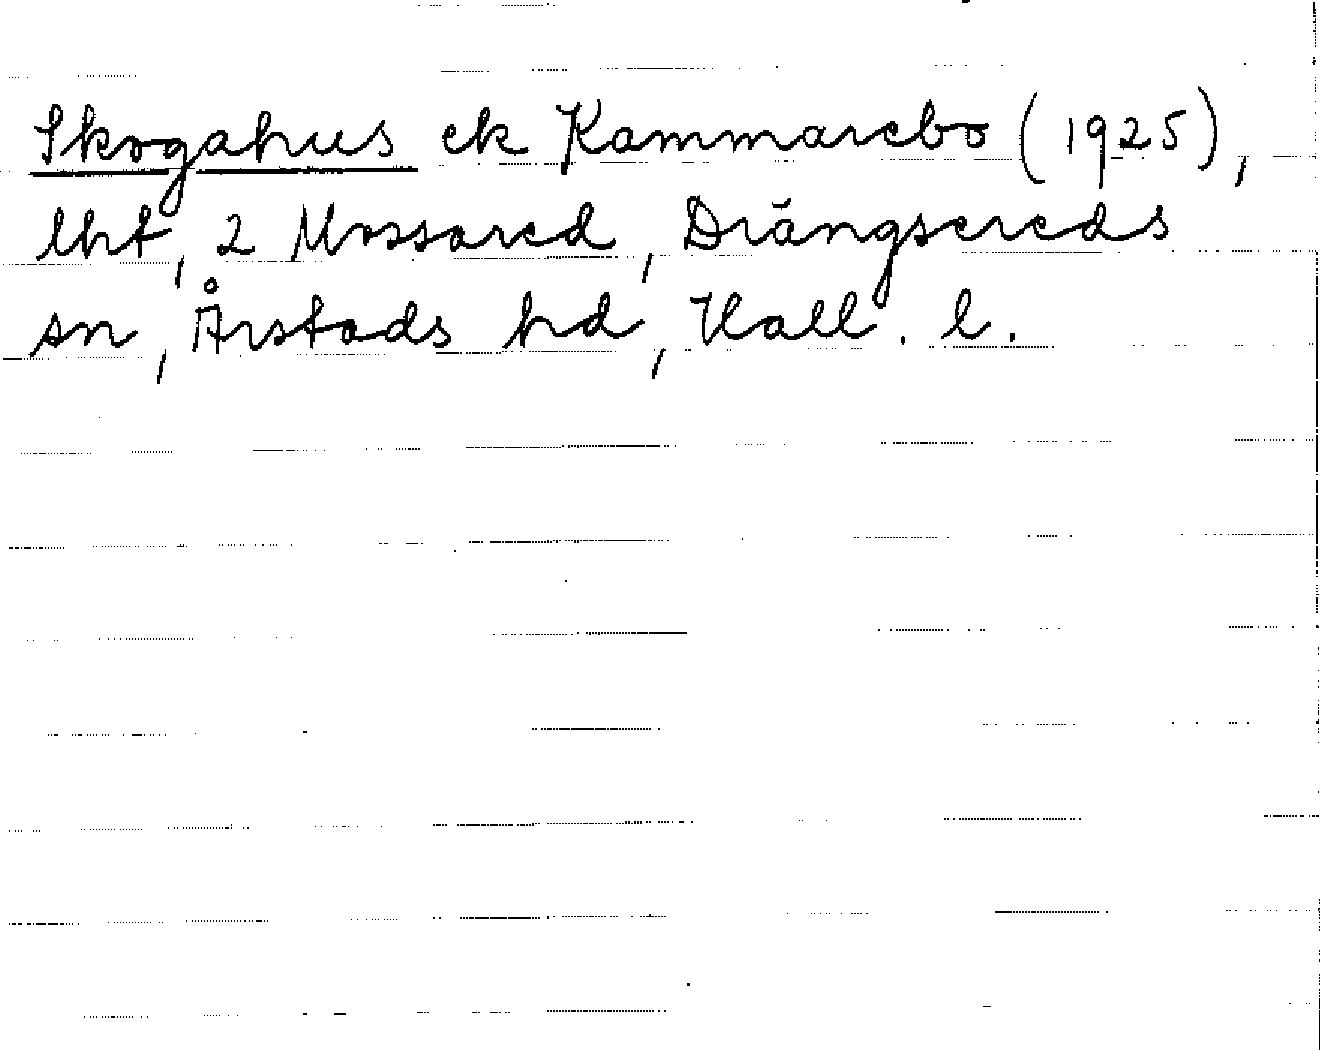 Skogahus ek Kammarebo (1925),
lht, 2 Mossared, Drängsereds
sn, Årstads hd, Hall. l.